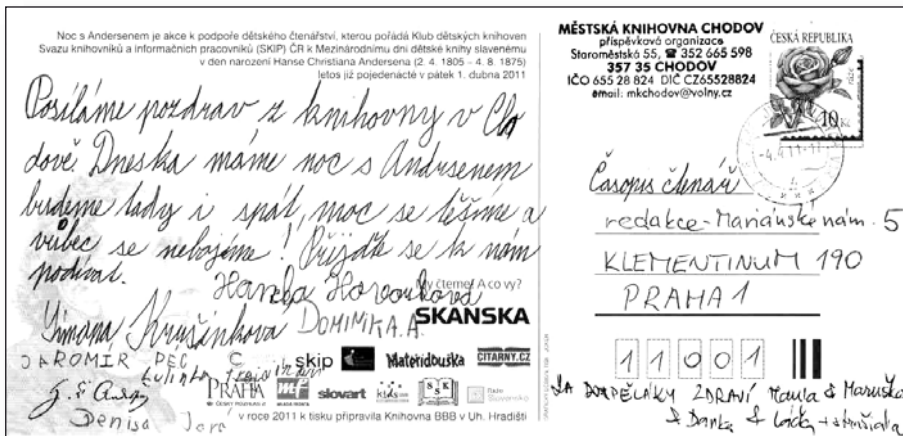 Noc s Andersenem je akce k podpoře dětského čtenářství, kterou pořádá Klub dětských knihoven
Svazu knihovníků a informačních pracovníků (SKIP) ČR k Mezinárodnímu dni dětské knihy slavenému
v den narození Hanse Christiana Andersena (2. 4. 1805 – 4. 8. 1875)
letos již pojedenácté v pátek 1. dubna 2011
Posíláme pozdrav z knihovny v Cho
dově. Dneska máme noc s Andrsenem
budeme tady i spát, moc se těšíme a
vůbec se nebojíme! Přijďte se k nám
podívat.
Hanka
My čteme! A co vy?
Simona Krušinková DOMINIKA.A.
SKANSKA
JAROMIR PEC
skip
Mateřídouška
CITARNY.CZ
PRAHA
mf
slovart
kids
SSK
Denisa
v roce 2011 k tisku připravila Knihovna BBB v Uh. Hradišti
MĚSTSKÁ KNIHOVNA CHODOV
příspěvková organizace
Staroměstská 55, ☎ 352 665 598
357 35 CHODOV
IČO 655 28 824 DIČ CZ65528824
email: mkchodov@volny.cz
ČESKÁ REPUBLIKA
růže
10 Kč
-4.4.11-17
Časopis čtenář
redakce-Mariánské nám. 5
KLEMENTINUM 190
PRAHA 1
1 1 0 0 1
ZA DOSPĚLÁKY ZDRAVÍ & Maruška
& Danka &